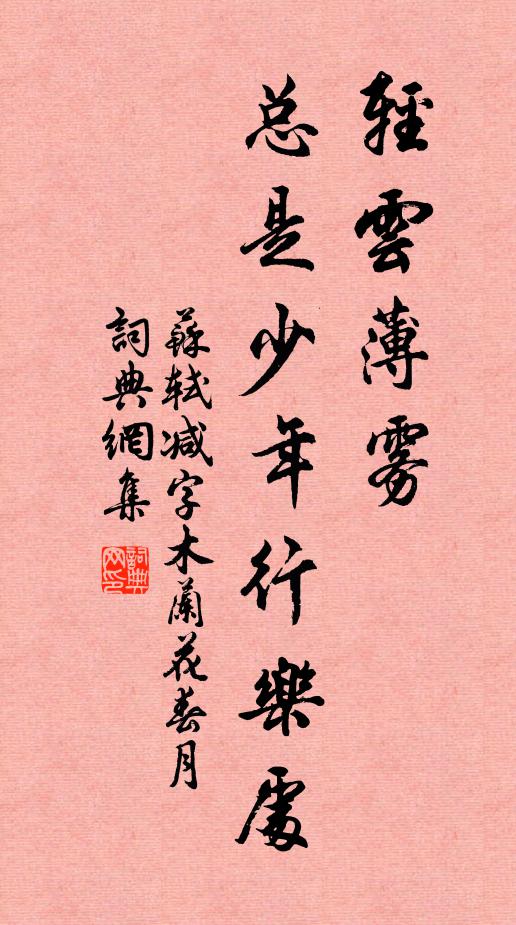 輕雲薄雾
总是少年行樂處
蘇軾减字木蘭花春月
詞典網集
詞典网印